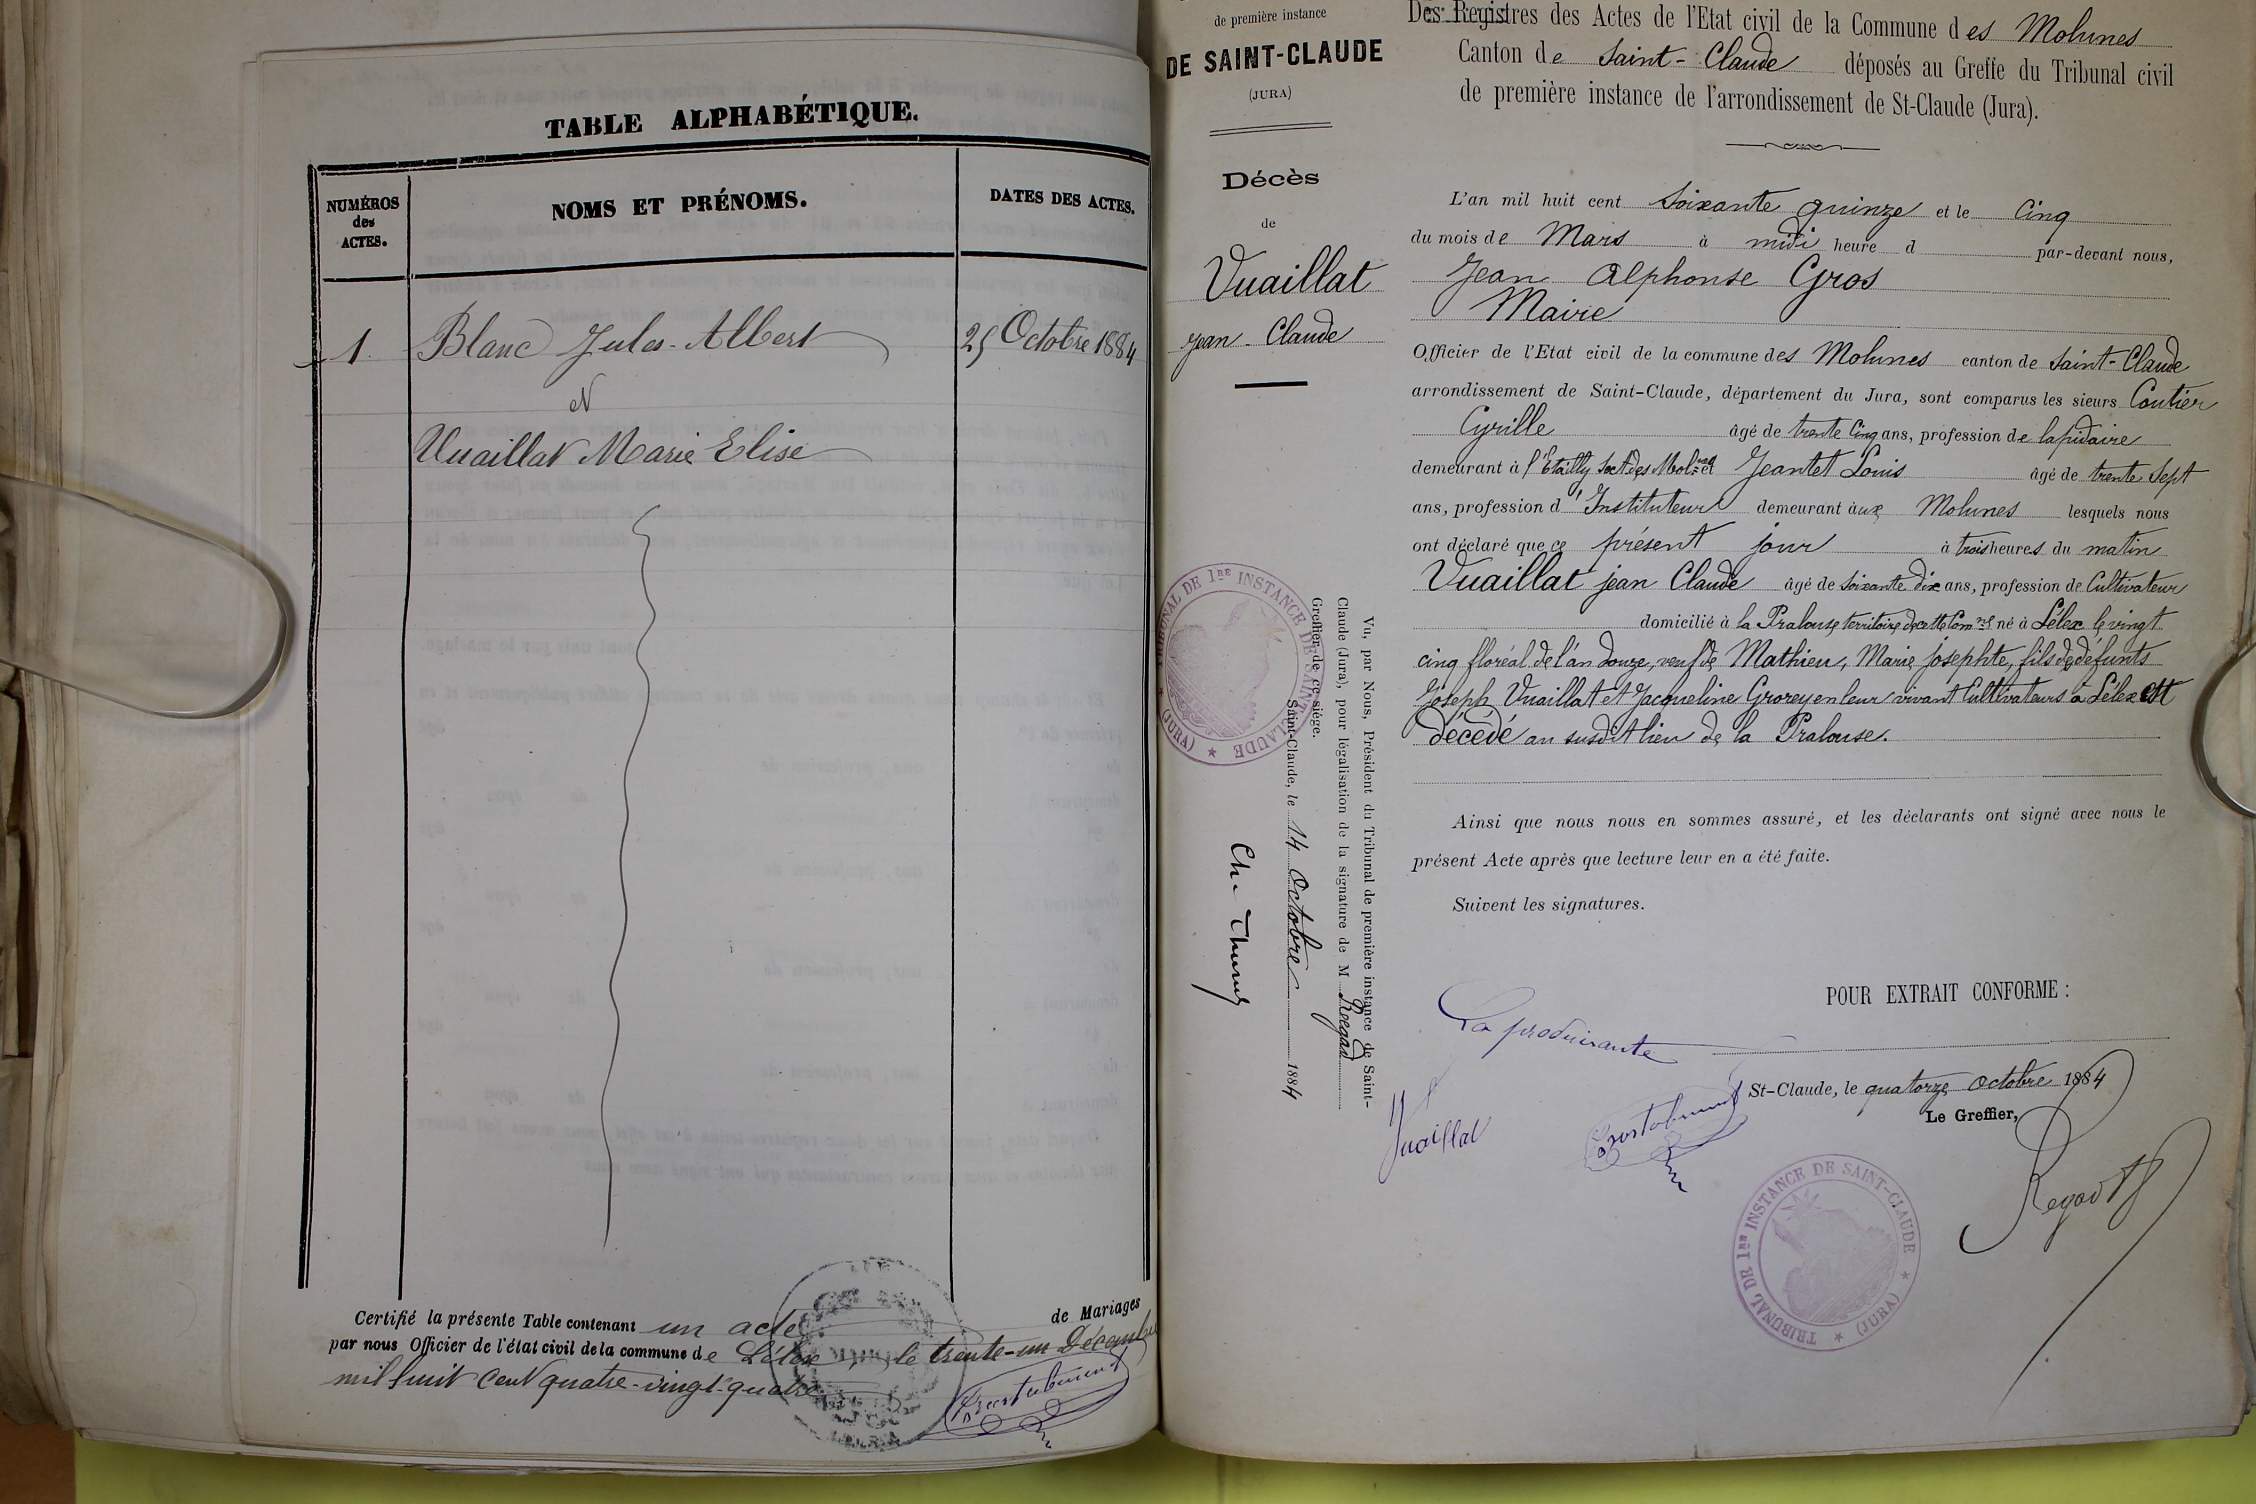 TABLE ALPHABÉTIQUE.
NUMÉROS
des
ACTES.
NOMS ET PRÉNOMS.
DATES DES ACTES.
1 Blanc Jules-Albert 25 Octobre 1884
et
Vuaillat Marie Elise
Certifié la présente Table contenant un acte de Mariages
par nous Officier de l'état civil de la commune de Lélex, le trente-un Décembre
mil huit cent quatre-vingt-quatre
de première instance
DE SAINT-CLAUDE
(JURA)
Décès
de
Vuaillat
jean-Claude
TRIBUNAL DE 1RE INSTANCE DE SAINT-CLAUDE
(JURA)
Vu, par Nous, Président du Tribunal de première instance de Saint-
Claude (Jura), pour légalisation de la signature de M
Greffier de ce siège.
Saint-Claude, le 14 octobre 1884
Des Registres des Actes de l'Etat civil de la Commune des Molunes
Canton de Saint-Claude déposés au Greffe du Tribunal civil
de première instance de l'arrondissement de St-Claude (Jura).
L'an mil huit cent soixante quinze et le Cinq
du mois de Mars à midi heure d par-devant nous,
Jean Alphonse Gros
Maire
Officier de l'Etat civil de la commune des Molunes canton de Saint-Claude
arrondissement de Saint-Claude, département du Jura, sont comparus les sieurs Coutier
Cyrille âgé de trente Cinq ans, profession de lapidaire
demeurant à l'Etailly Sect. des Mol.nes et Jeantet Louis âgé de trente sept
ans, profession d'Instituteur demeurant aux Molunes lesquels nous
ont déclaré que ce présent jour à trois heures du matin
Vuaillat jean Claude âgé de soixante dix ans, profession de Cultivateur
domicilié à la Pralouse territoire de cette Com.ne né à Lélex le vingt
cinq floréal de l'an douze, veuf de Mathieu, Marie josephte, fils de défunts
Joseph Vuaillat et Jacqueline Grorey en leur vivant Cultivateurs à Lélex est
décédé au susdit lieu de la Pralouse.
Ainsi que nous nous en sommes assuré, et les déclarants ont signé avec nous le
présent Acte après que lecture leur en a été faite.
Suivent les signatures.
POUR EXTRAIT CONFORME :
La produisante
St-Claude, le quatorze octobre 1884
Le Greffier,
Vuaillat
TRIBUNAL DE 1RE INSTANCE DE SAINT-CLAUDE
(JURA)